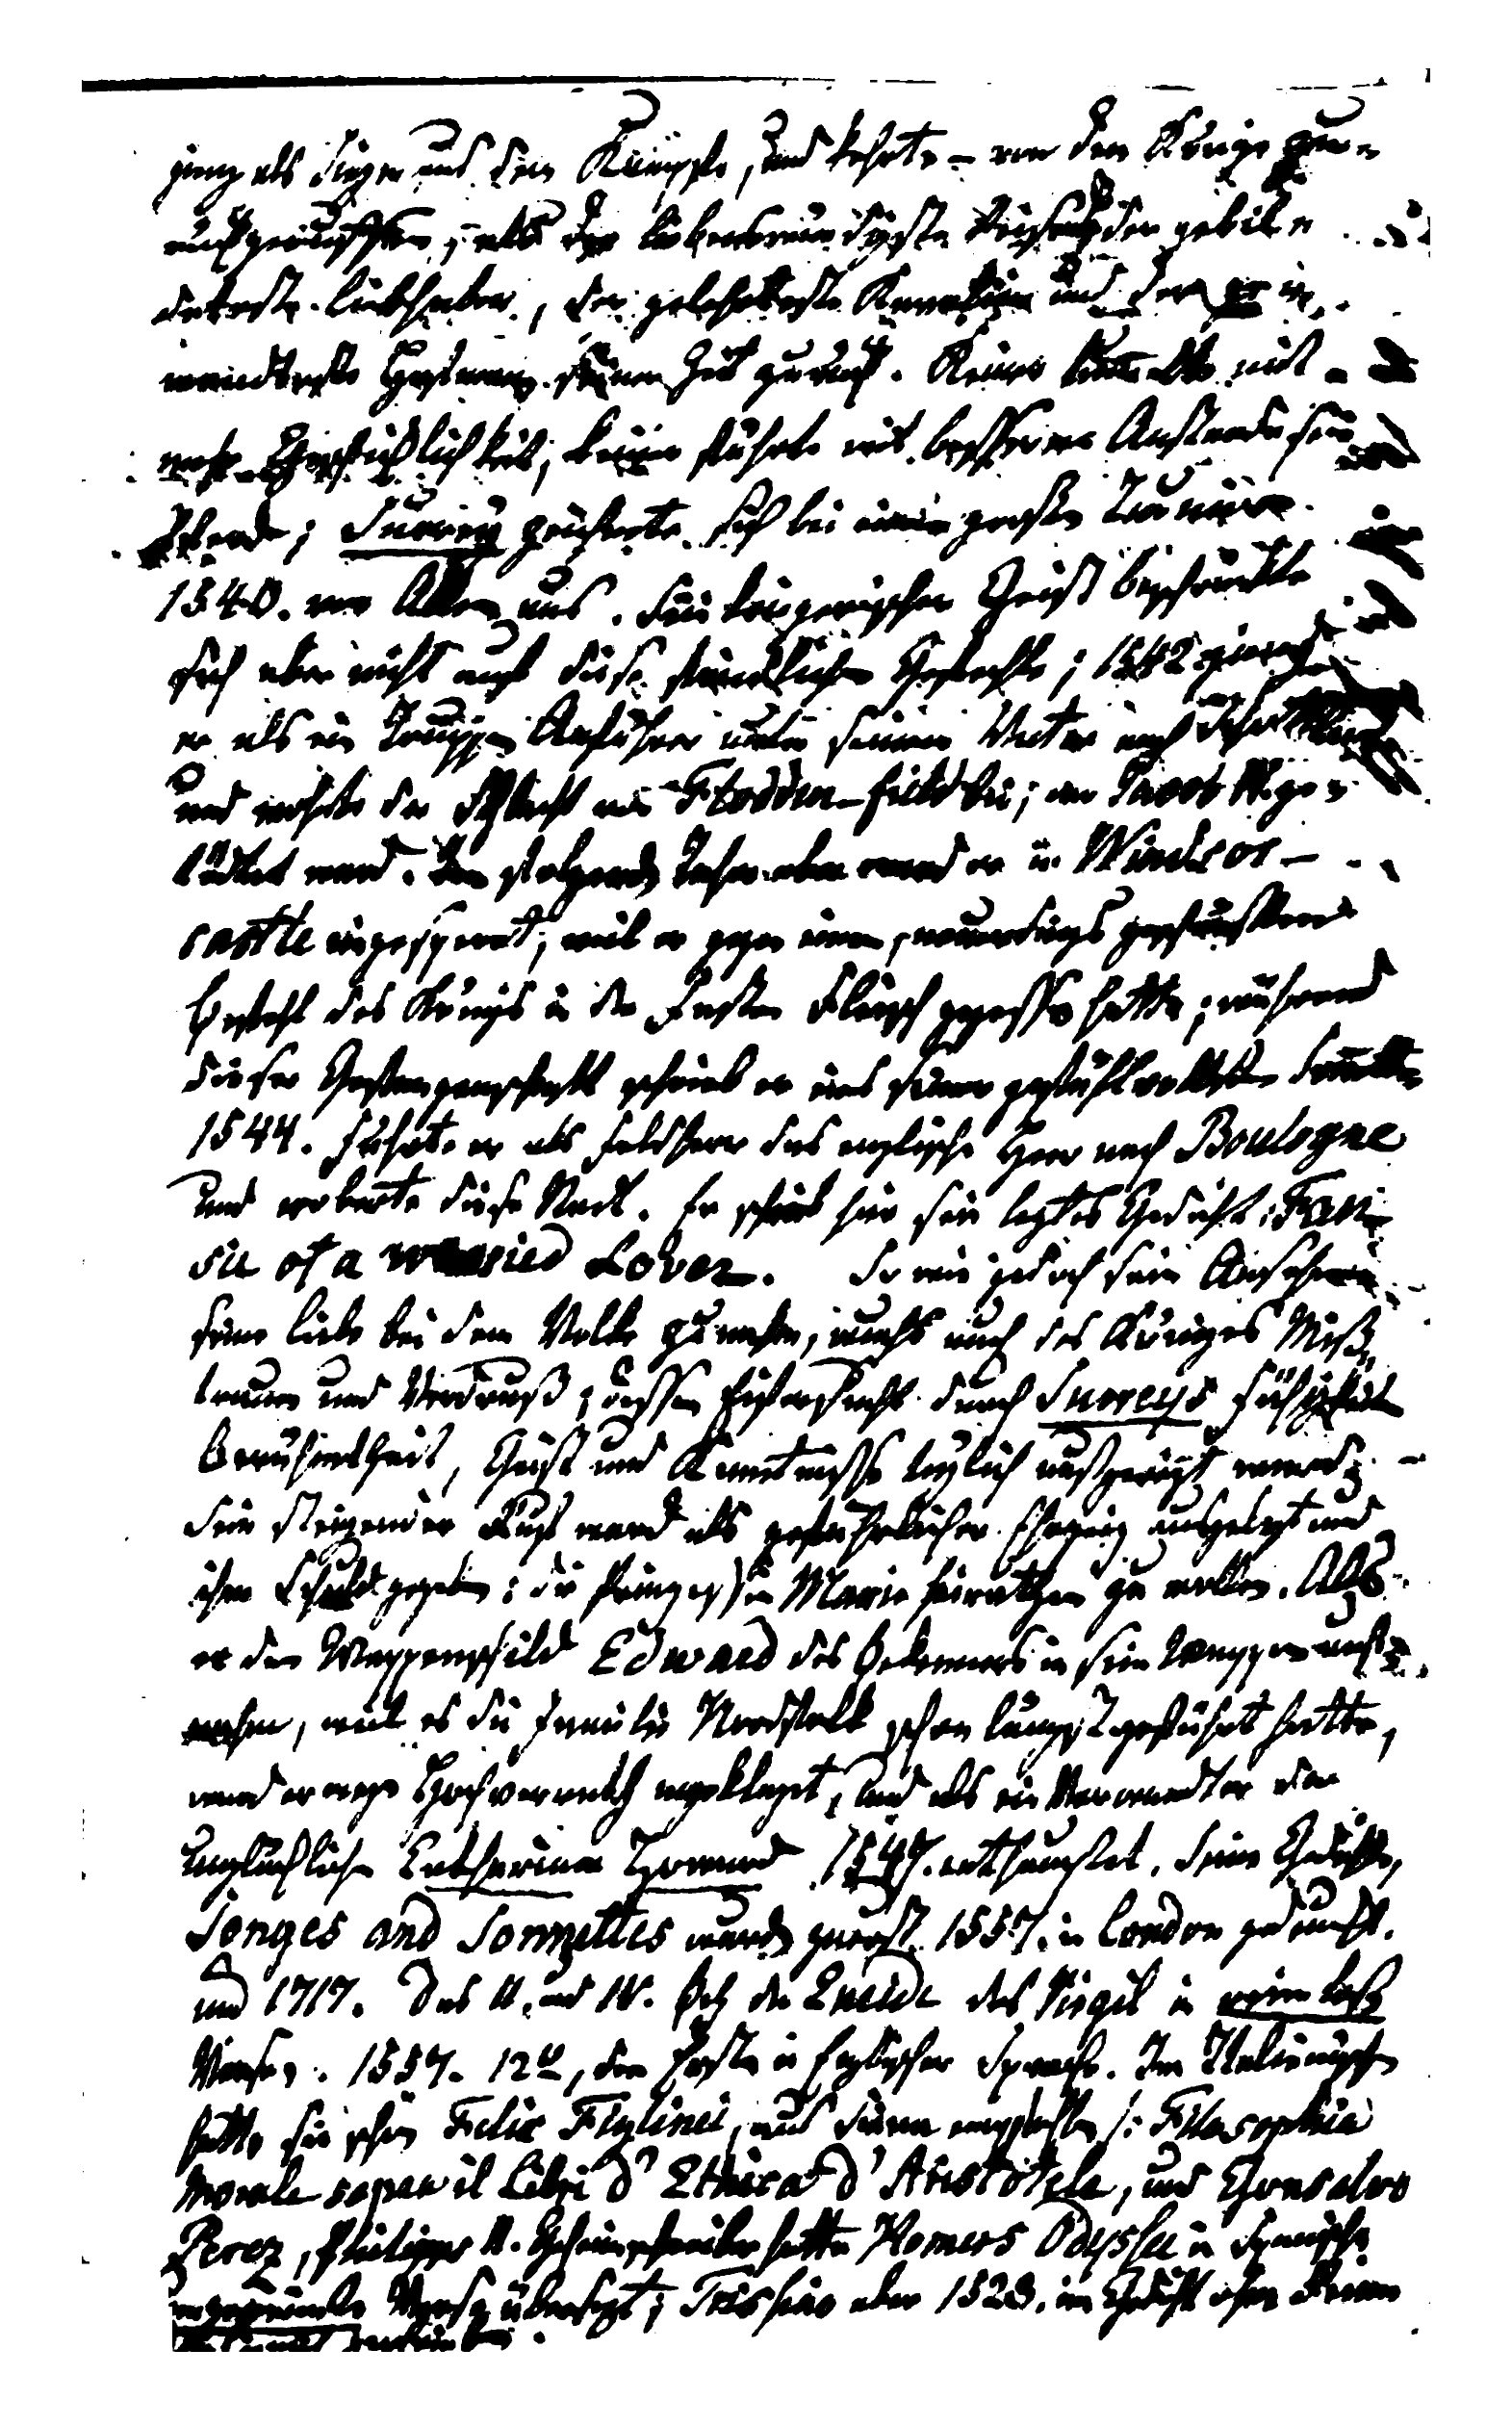 ging als Sieger aus dem Kampfe, und kehrte – von dem Könige zu=
rückgerufen, als der liebenswürdigste der gebil=
detste Liebhaber, der gelehrteste Kavalier und der ge=
wandteste Hofmann seiner Zeit zurück. Keiner mit
mehr Geschicklichkeit, keiner führte mit besserem Anstande sein
Pferd; Surrey zeichnete sich bei einem großen Turniere
1540. vor Allen aus. Sein kriegerischer Geist beschränkte
sich aber nicht auf diese Gefechte; 1542 ging
er als ein Truppen Anführer unter seinem Vater nach Schottland
und wohnte der Schlacht von Flodden-field bei; wo Jacob IV. ge=
tödtet ward. Im folgenden Jahre aber ward er in Windsor-
castle eingesperrt, weil er gegen einen, neuerdings geschärften
Befehl des Königs in der Fasten Fleisch gegessen hatte; während
dieser Gefangenschaft schrieb er eins seiner gefühlvollsten Sonette
1544. führte er als Feldherr das englische Heer nach Boulogne
und eroberte diese Stadt. Er schrieb hier sein letztes Gedicht: Fan=
sie of a wearied Lover. So wie jedoch sein Ansehen
seine Liebe bei dem Volke zunahm, wuchs auch des Königes Miß=
trauen und Verdruß, dessen Eifersucht durch Surreys Fähigkeit
Berühmtheit, Geist und Kenntnisse täglich aufgeregt ward.
Sein steigender Ruf ward als gefährlicher Ehrgeiz ausgelegt und
ihm Schuld gegeben: die Prinzessin Marie heirathen zu wollen. Als
er den Wappenschild Edward des Bekenners in sein Wappen auf=
nahm, weil es die Familie Nordfolk schon längst geführt hatte,
ward er wegen Hochverrath angeklagt, und als ein Verwandter der
unglücklichen Catharina Howard 1547. enthauptet. Seine Gedichte,
Songes and Sonnettes wurden zuerst 1557. in London gedruckt.
und 1717. Das II. und IV. Bch der Eneide des Virgil in reimlosen
Versen. 1557. 12º, die Ersten in Englischer Sprache. Im Italienischen
hatte sie schon Felix Figlinei, aus seiner /: Filosophia
morale sopra il Libri d' Ethica d' Aristotele, und Gonsalvo
Perez, Philipps II. Geheimschreiber hatte Homers Odyssee in Spanische
ungereimte Verse übersetzt; Trissino aber 1528. ein Gedicht ohne Reime